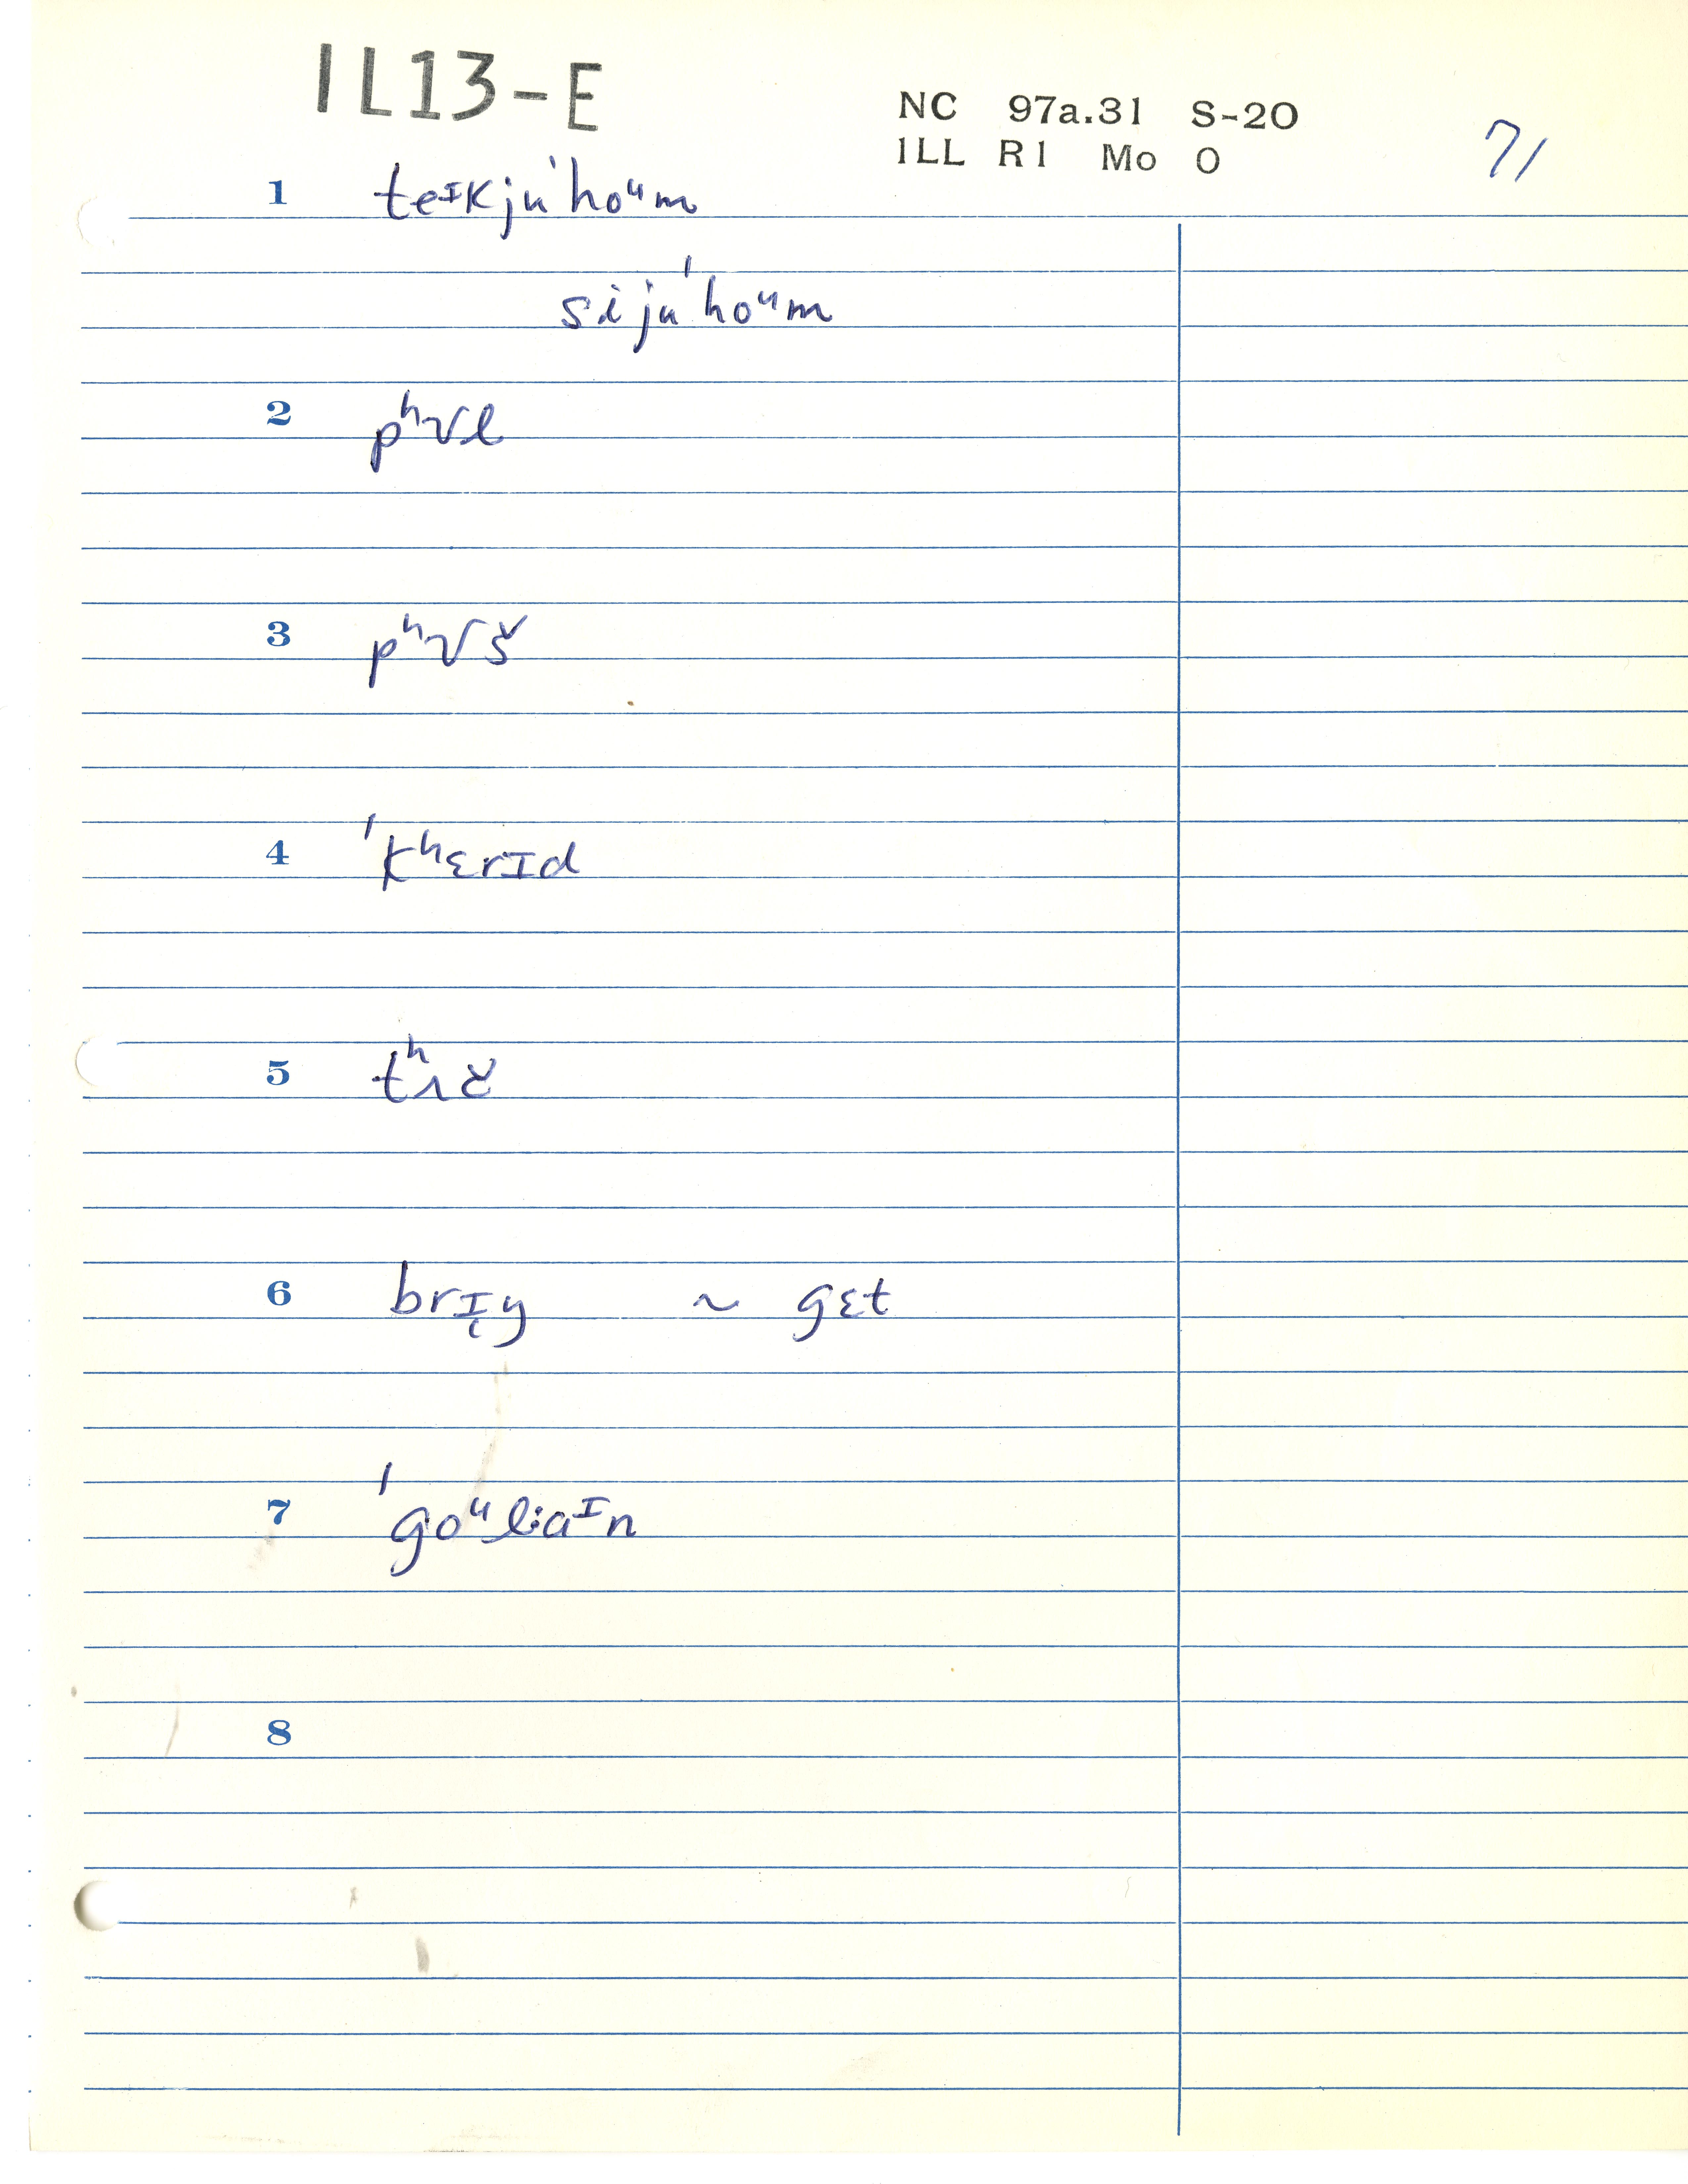 IL13-E
NC 97a.31 S-20
ILL R1 Mo O
71
1 teɪkju'hoᵘm
siju'hoᵘm
2 pʰᴜl
3 pʰᴜš
4 'kʰɛrɪd
5 tʰʌč
6 brɪ̨ŋ ~ gɛt
7 'goᵘl:aᴵn
8